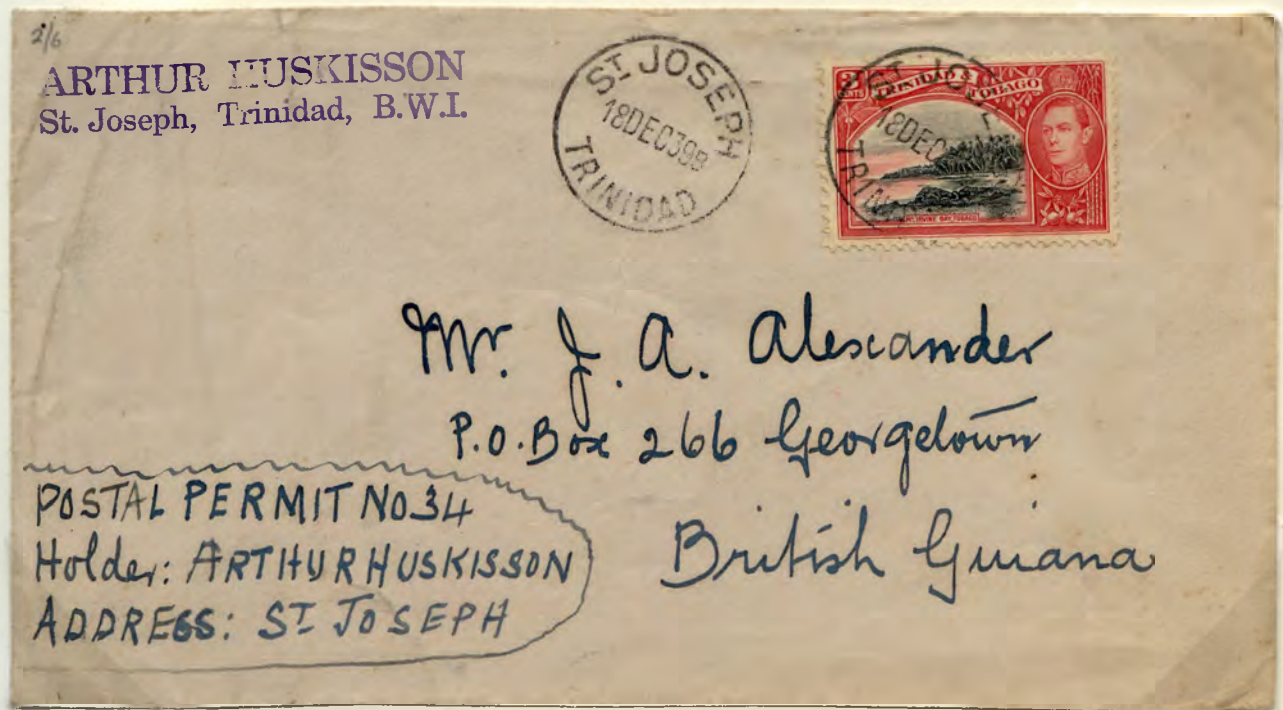 2/6
ARTHUR HUSKISSON
St. Joseph, Trinidad, B.W.I.
ST JOSEPH
18DEC39B
TRINIDAD
TRINIDAD &
TOBAGO
ST JOSE
18DEC
Mr. J. A. Alexander
P.O. Box 266 Georgetown
British Guiana
POSTAL PERMIT NO 34
Holder: ARTHUR HUSKISSON
ADDRESS: ST JOSEPH